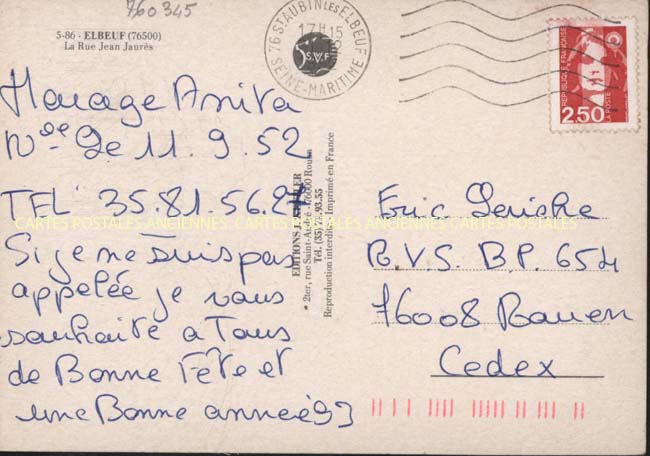 760345
5-86 - ELBEUF (76500)
La Rue Jean Jaurès
76 ST AUBIN LES ELBEUF
17H15
SEINE-MARITIME
S.V.F
REPUBLIQUE FRANÇAISE
LA POSTE
2,50
Anita
Née le 11.9.52
TEL. 35.81.56.
Si je ne suis pas
appelée je vous
souhaite a Tous
de Bonne Fête et
une Bonne année 93
EDITIONS
2ter, rue Saint-André - 76000 Rouen
Tél. (35)
Reproduction interdite - Imprimé en France
CARTES POSTALES ANCIENNES CARTES POSTALES ANCIENNES CARTES POSTALES
Eric
R.V.S. B.P. 654
76008 Rouen
Cedex